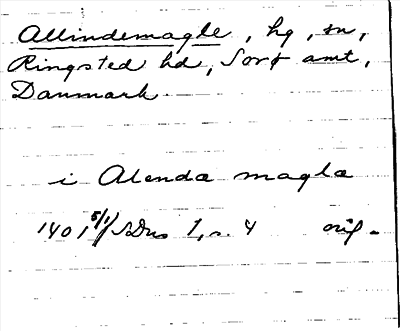 Allindemagle, hg, sn,
Ringsted hd, Sorø amt,
Danmark
i Alenda magla
1401 5/1 SDns 1, s. 4 orig.